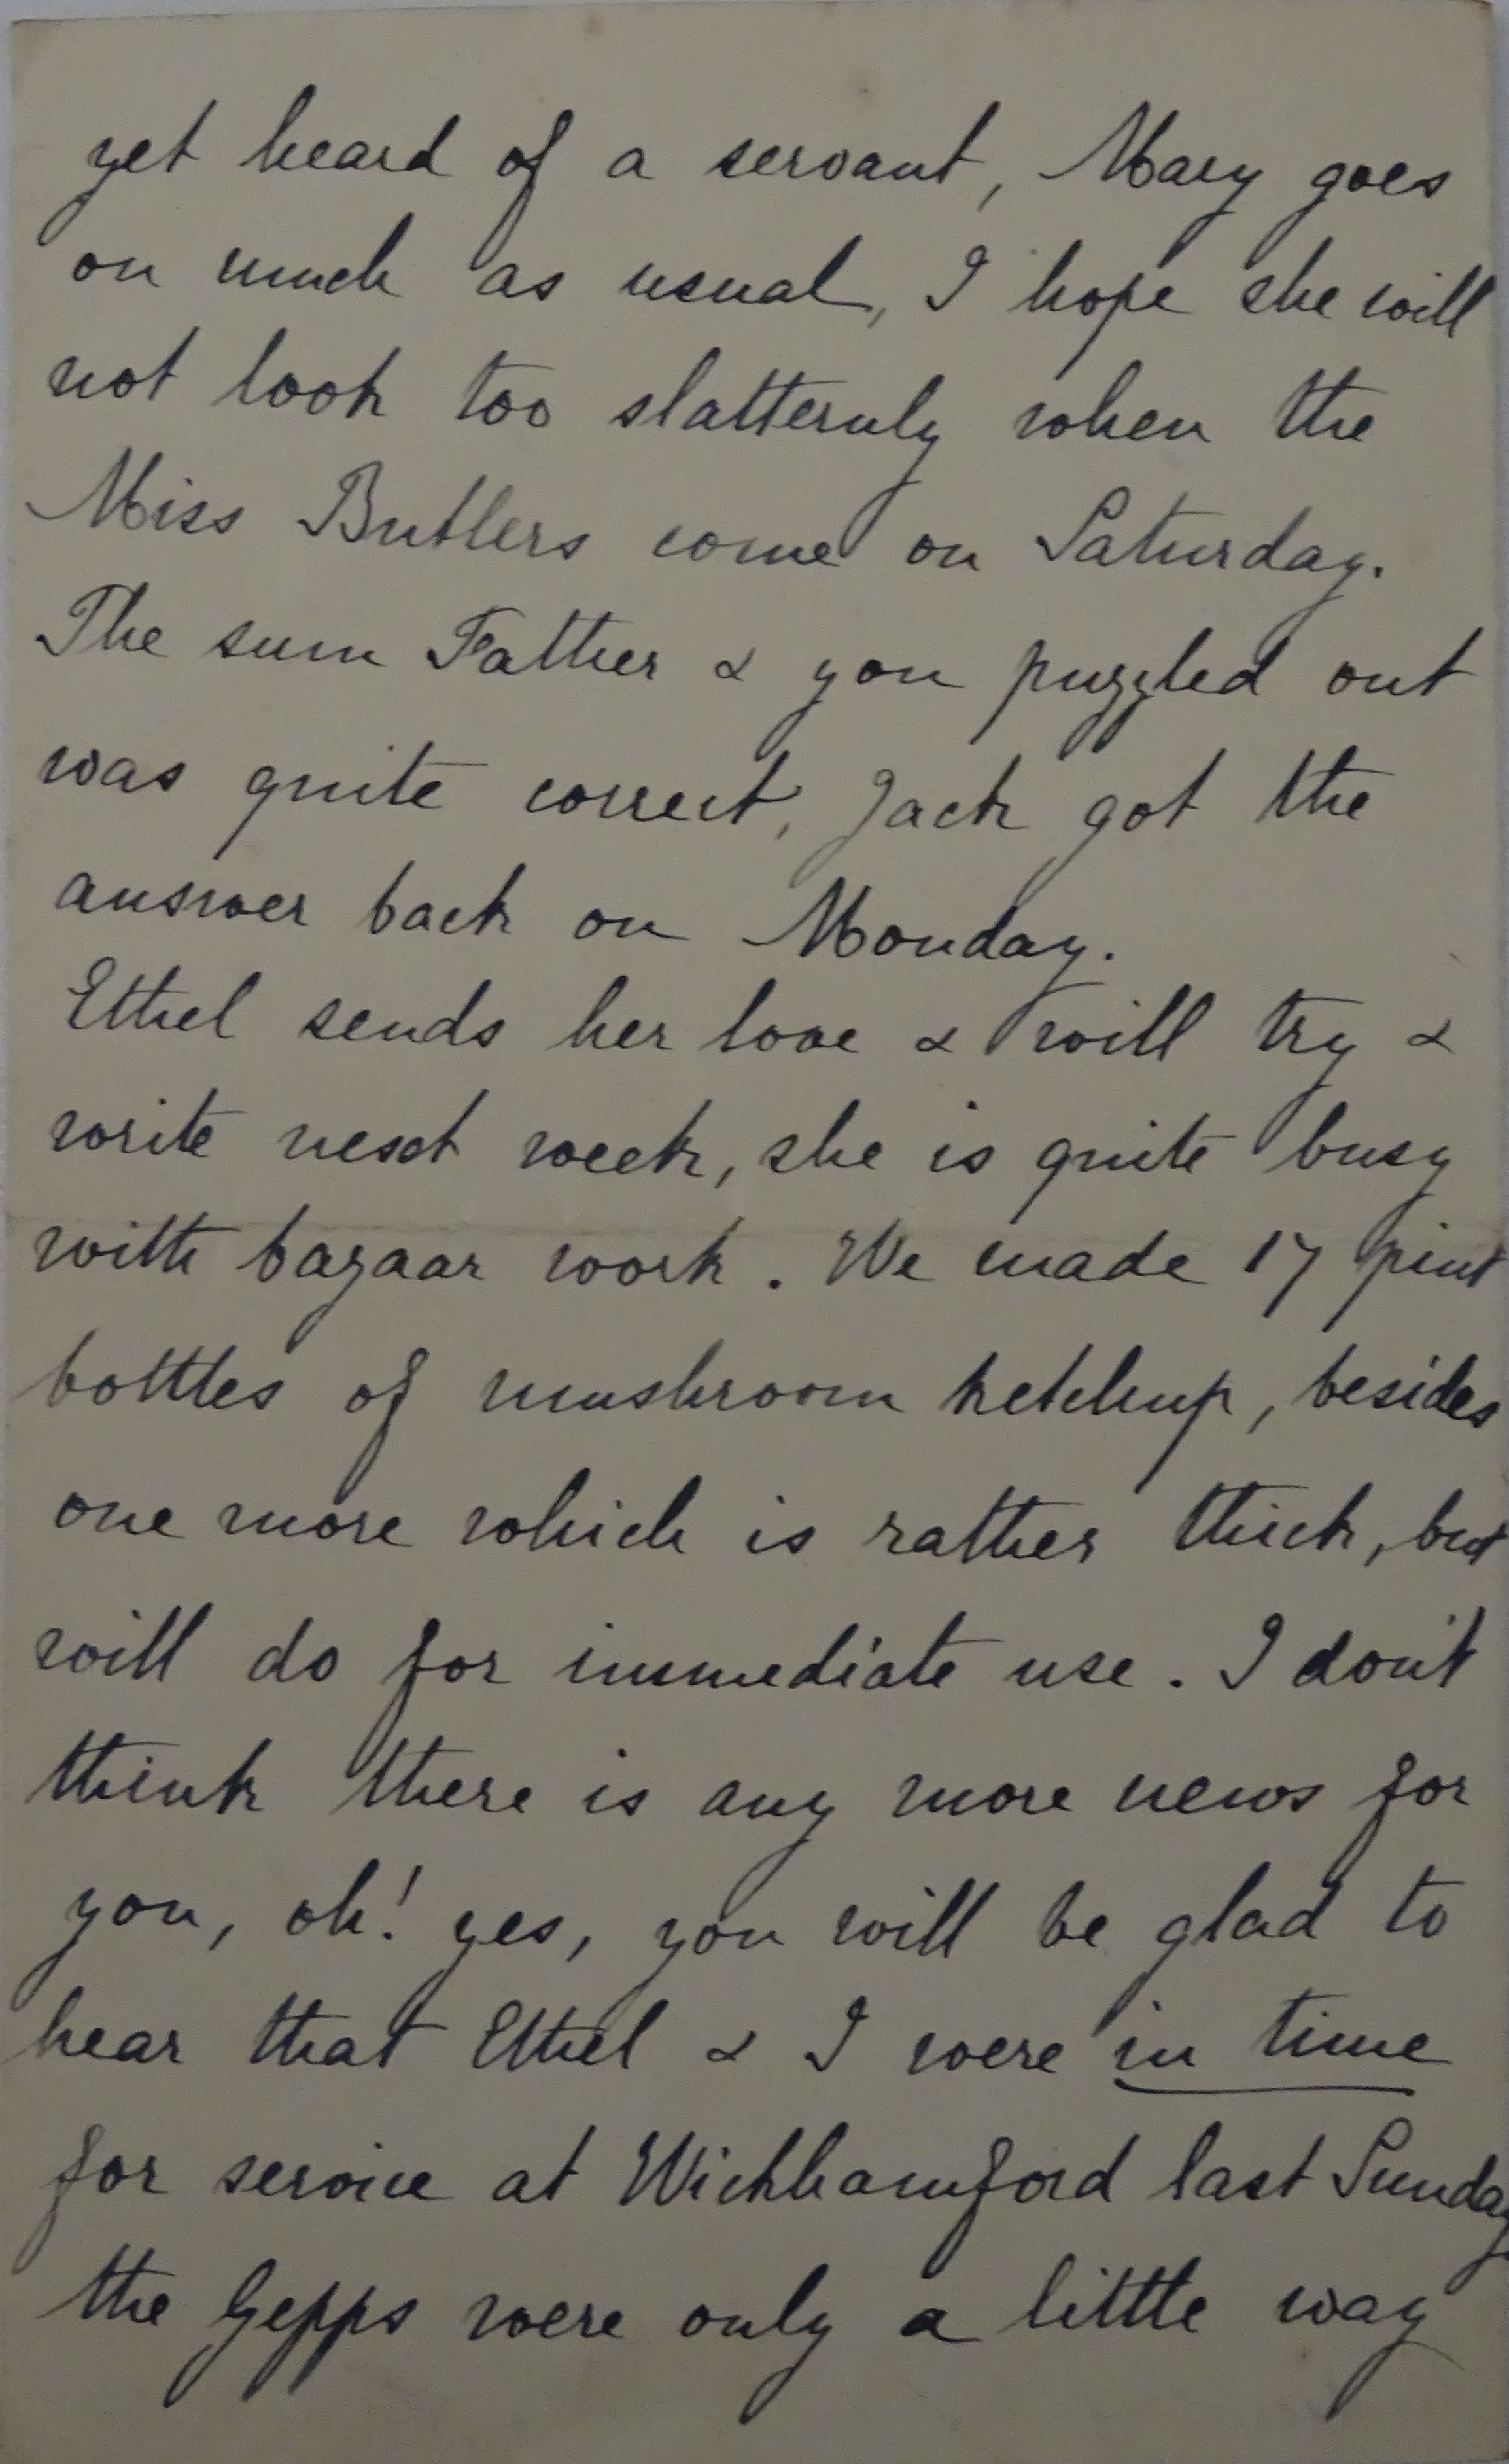 yet heard of a servant, Mary goes
on much as usual, I hope she will
not look too slatternly when the
Miss Butlers come on Saturday.
The sum Father & you puzzled out
was quite correct, Jack got the
answer back on Monday.
Ethel sends her love & will try &
write next week, she is quite busy
with bazaar work. We made 17 pint
bottles of mushroom ketchup, besides
one more which is rather thick, but
will do for immediate use. I don't
think there is any more news for
you, oh! yes, you will be glad to
hear that Ethel & I were in time
for service at Wickhamford last Sunday
the Gepps were only a little way